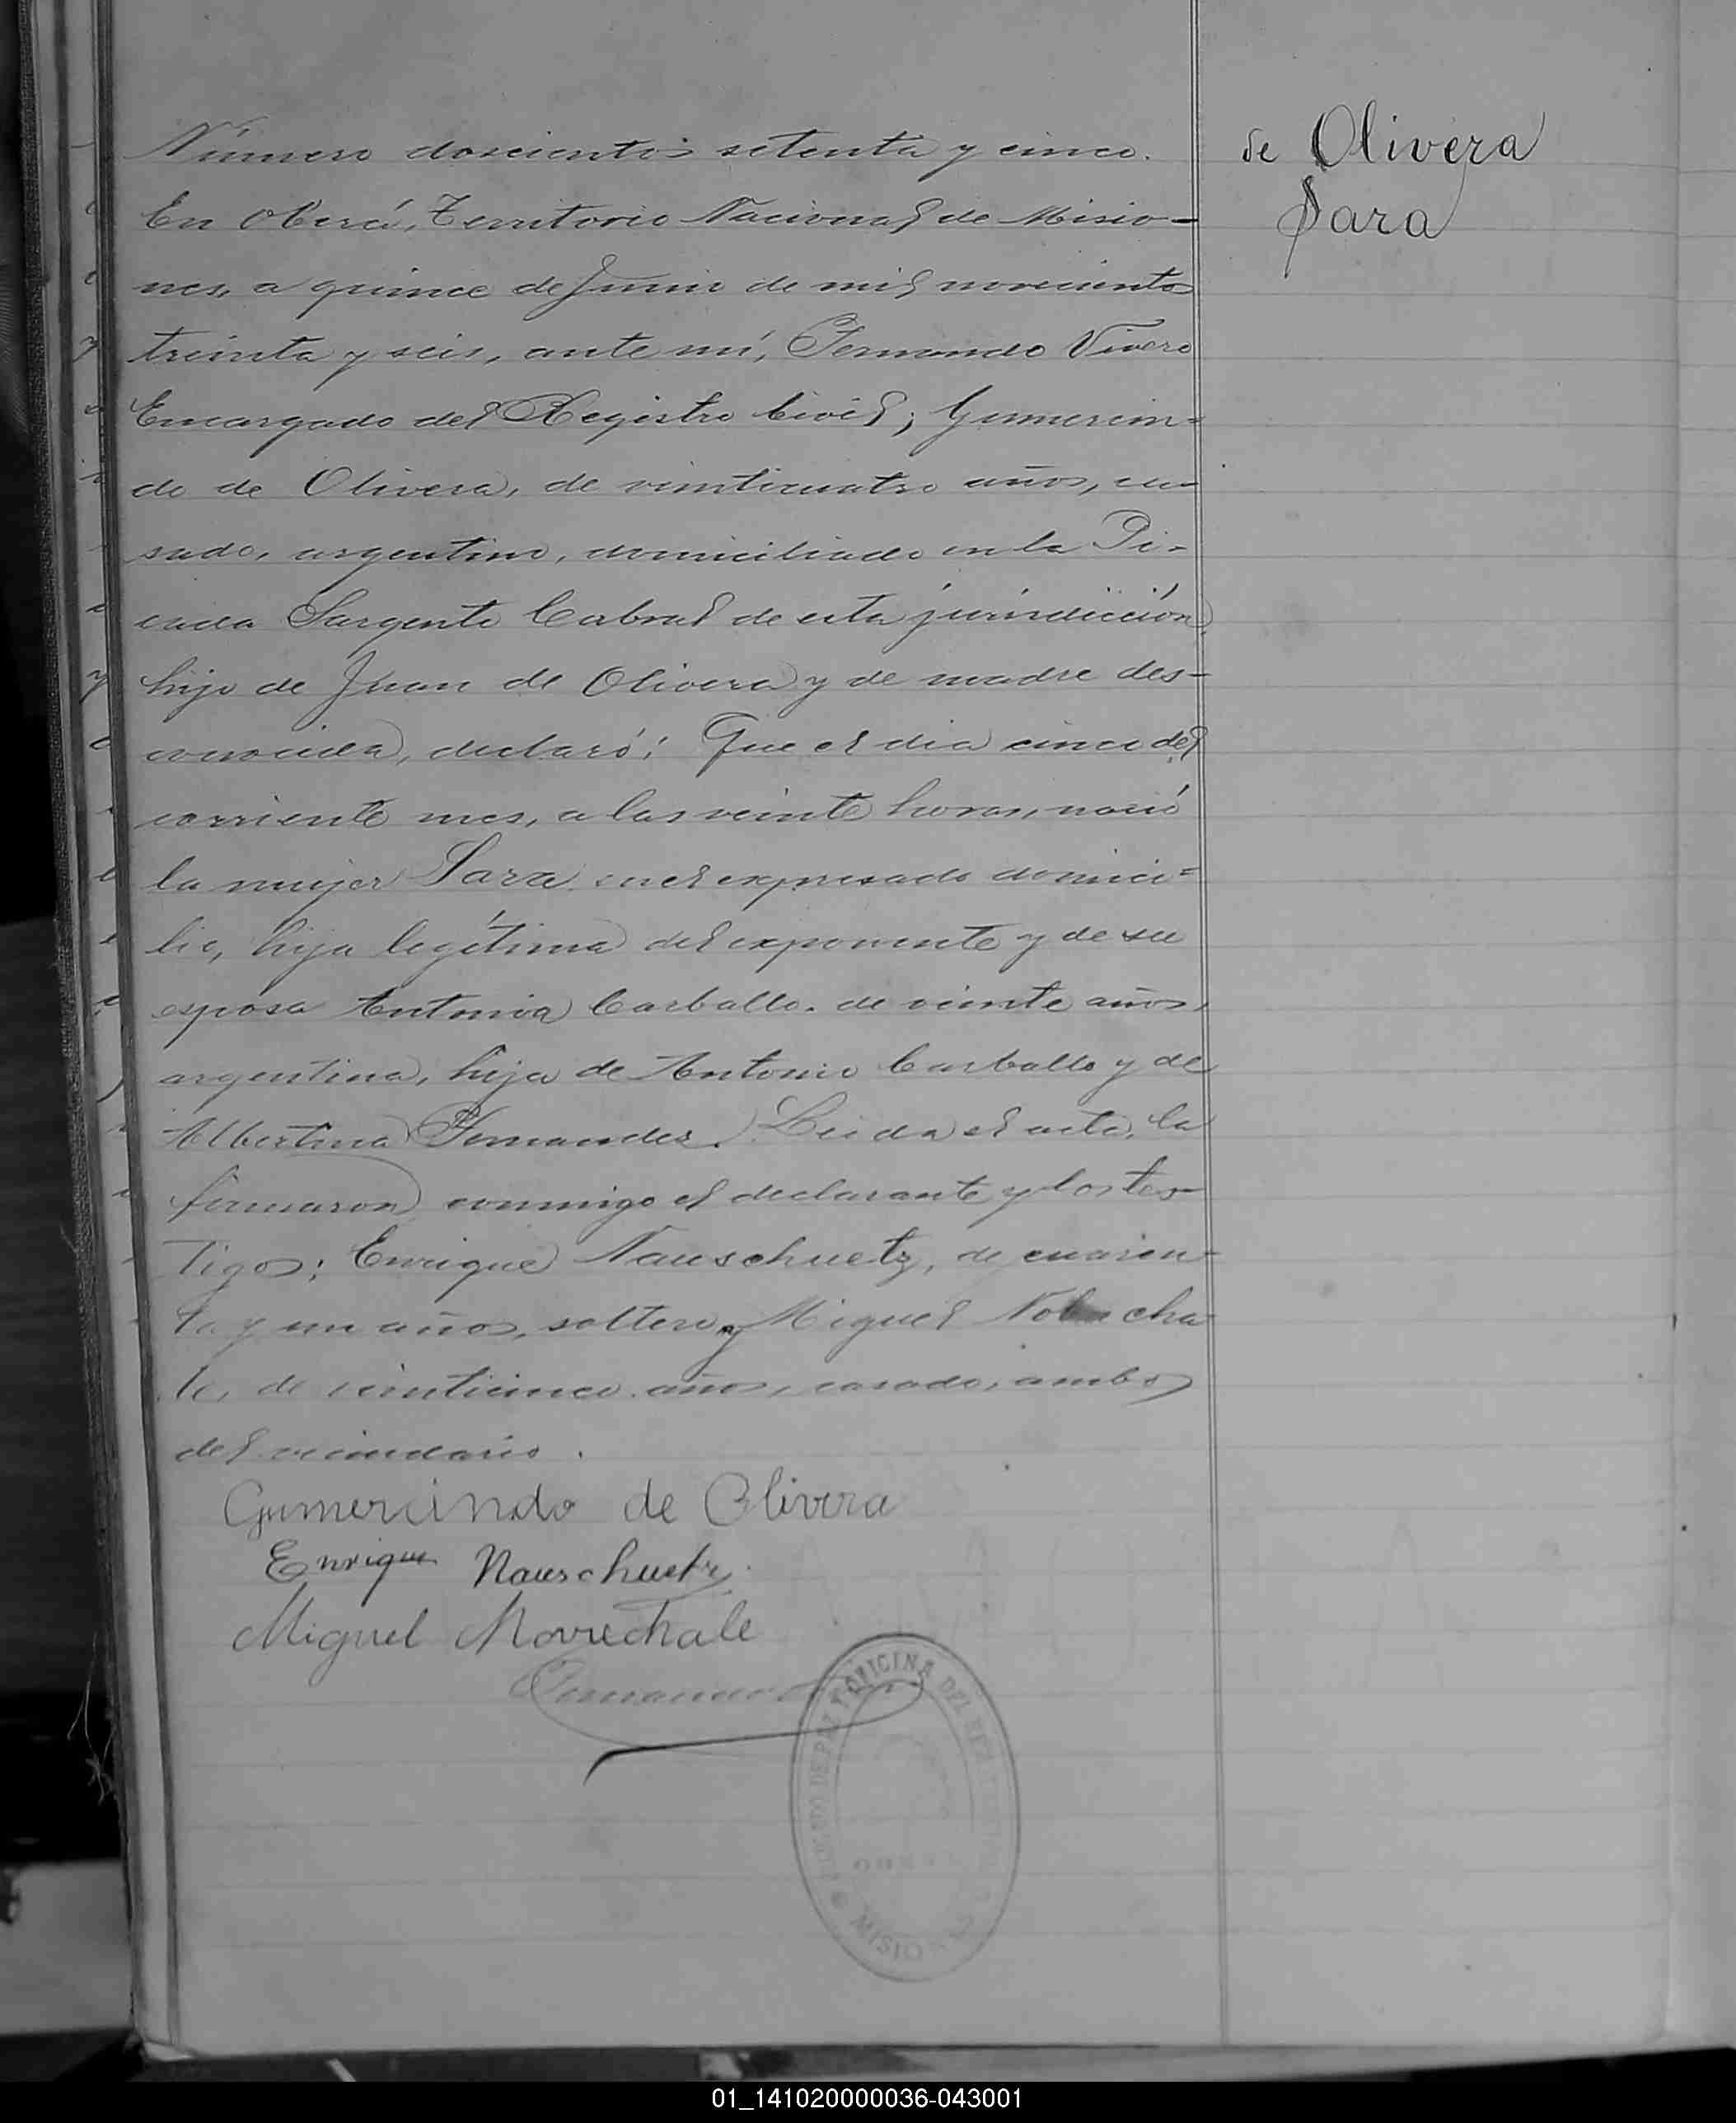 Número doscientos setenta y cinco.
En Oberá, Territorio Nacional de Misio-
nes, a quince de Junio de mil novecientos
treinta y seis, ante mí, Fernando Vivero
Encargado del Registro Civil; Gumersin-
do de Olivera, de veinticuatro años, ca-
sado, argentino, domiciliado en la Pi-
cada Sargento Cabral de esta jurisdicción,
hijo de Juan de Olivera y de madre des-
conocida, declaró: Que el dia cinco del
corriente mes, a las veinte horas, nació
la mujer Sara en el expresado domici-
lio, hija legítima del exponente y de su
esposa Antonia Carballo, de veinte años,
argentina, hija de Antonio Carballo y de
Albertina Fernandez. Leida el acta, la
firmaron conmigo el declarante y los tes-
tigos; Enrique Nauschuetz, de cuaren-
ta y un años, soltero y Miguel cha
le, de veinticinco años, casado, ambos
del vecindario.
Gumercindo de Olivera
Enrique Nauschuetz
Miguel Movrechale
Fernando
de Olivera
Sara
JUZGADO DE PAZ Y OFICINA DEL REGISTRO CIVIL
OBERÁ
MISIONES
01_141020000036-043001